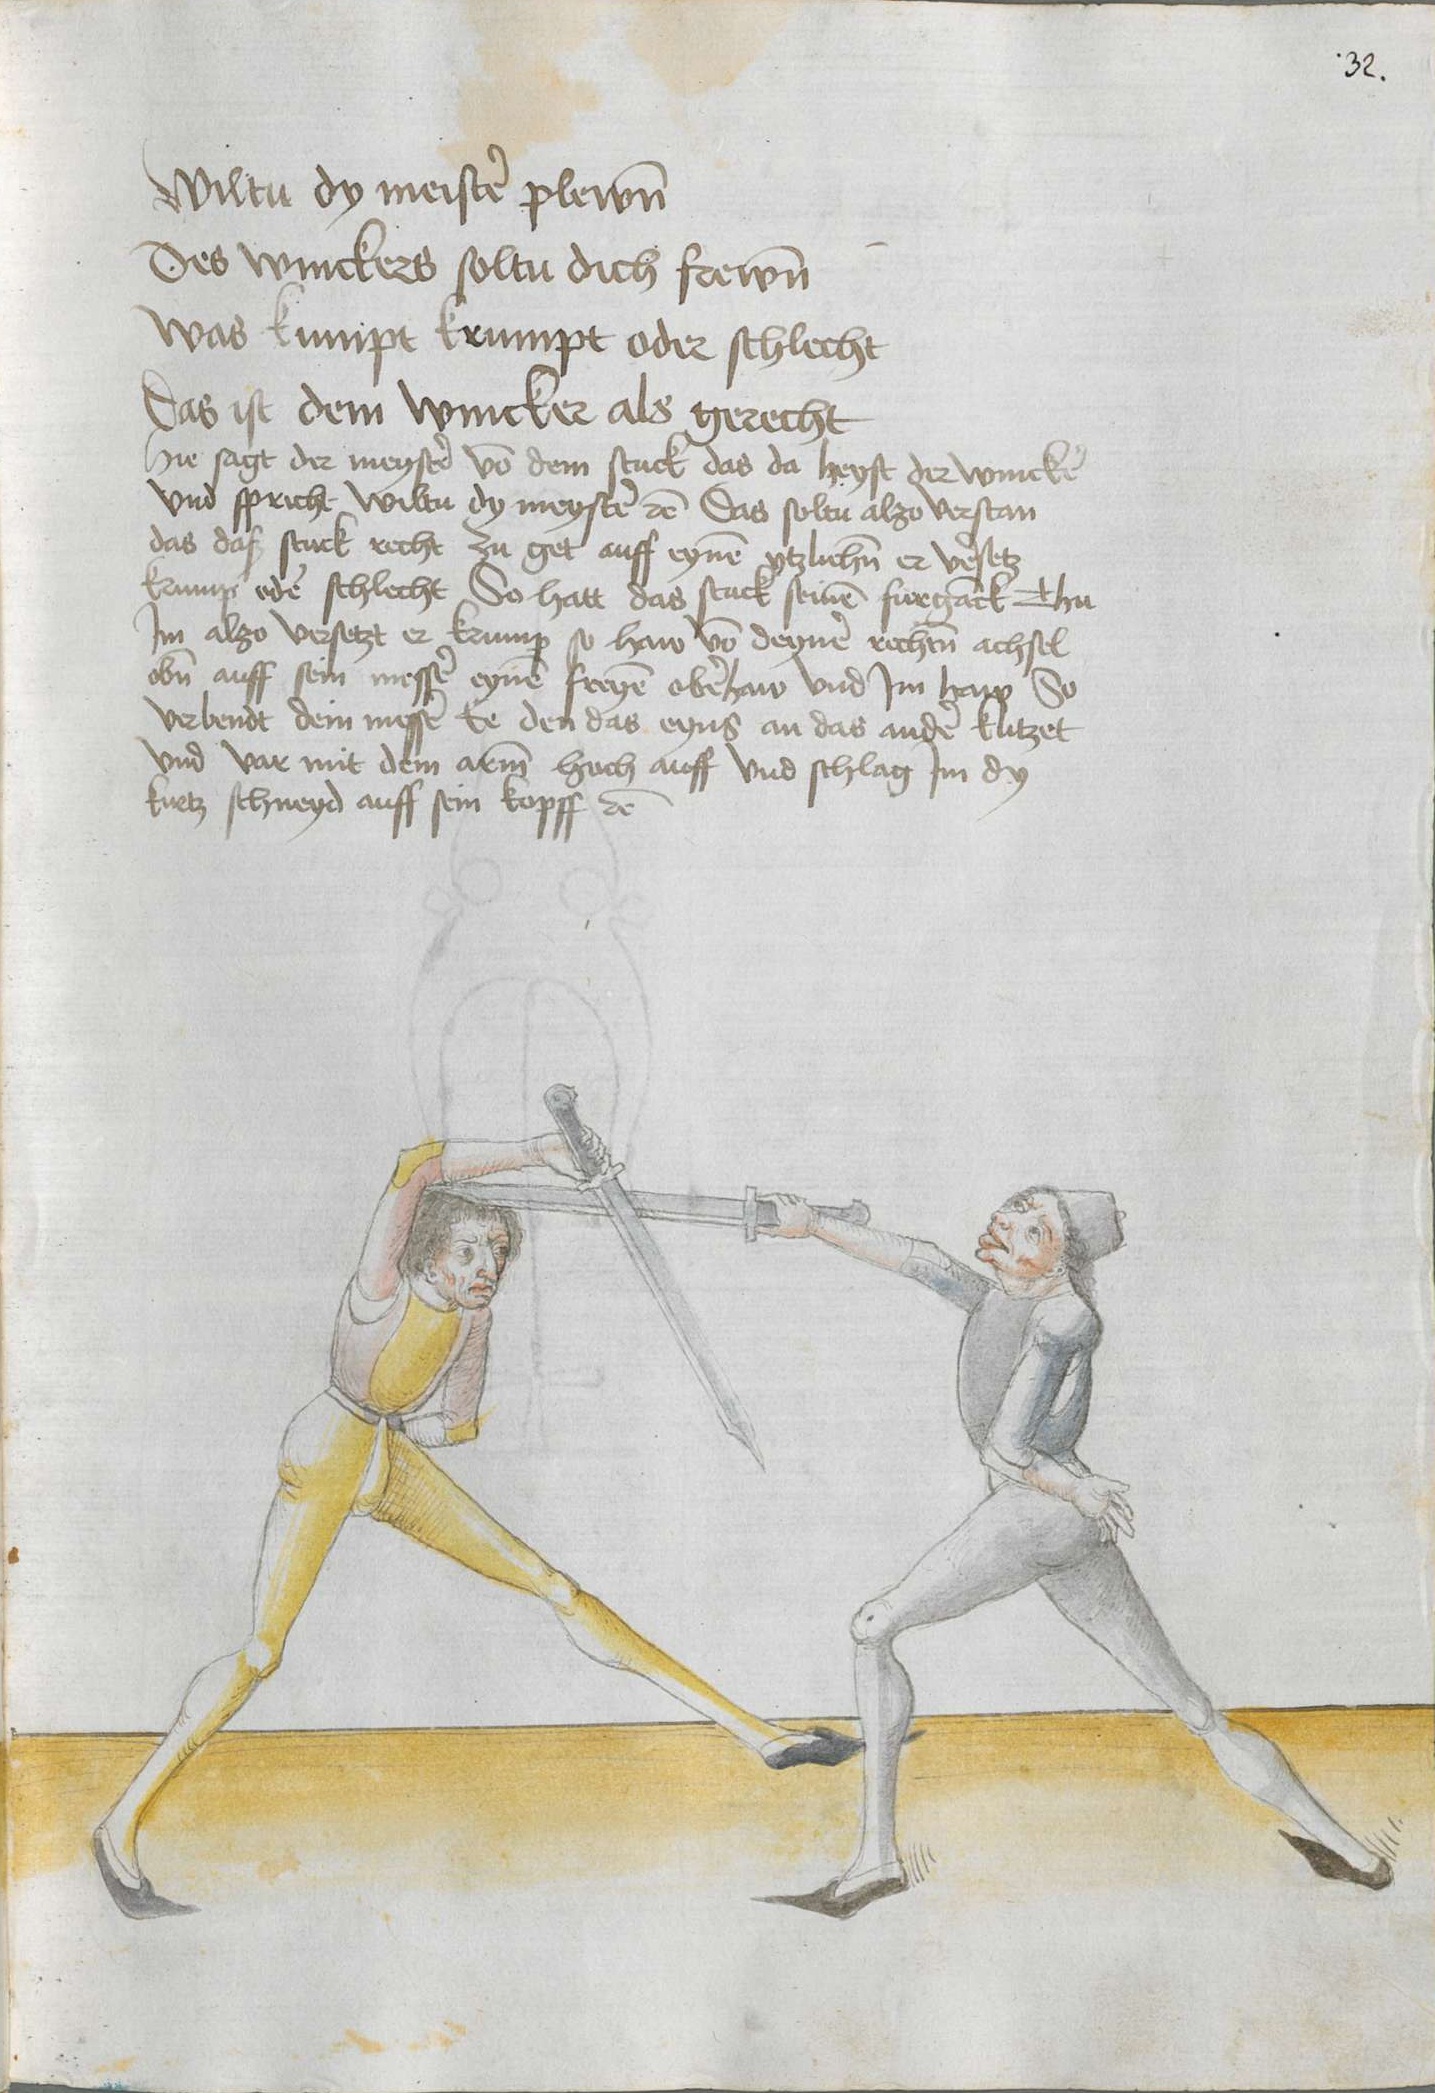 32.
Wiltu dy meistẽ plewn̄
Des winckers soltu dich frewn̄
Was kumpt krumpt oder schlecht
Das ist dem wincker als gerecht
Hie sagt der meystẽ vō dem stuck das da heyst der winckẽ
Vnd spricht Wiltu dy meystẽ rc̄ Das soltu alzo verstan
das daß stuck recht zu get auff eynē ytzlichn̄ er vẽsetz
krump odẽ schlecht So hatt das stuck seinē furganck Thu
Im alzo versetzt er krump so haw vō deynẽ rechtn̄ achsel
obn̄ auff sein messẽ eynē freyē obẽhaw vnd Im haw So
verbendt dein messẽ Ee den das eyns an das andẽ klitzet
vnd var mit dem arm̄ hoch auff vnd schlag Im dy
kurtz schneyd auff sein kopff rc̄